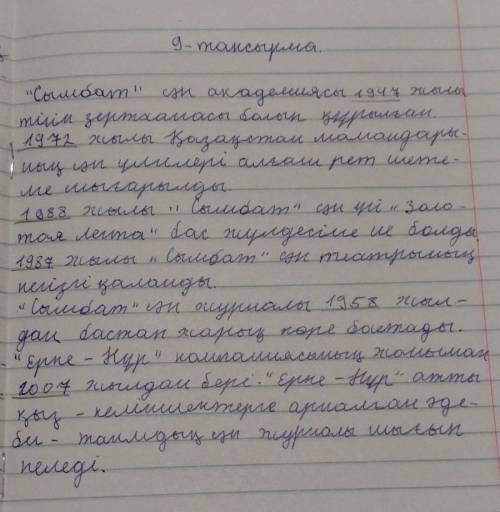 9-тапсырма.
"Сымбат" сән академиясы 1947 жылы
тігін зертханасы болып құрылған
1972 жылы Қазақстан мамандары-
ның сән үлгілері алғаш рет шете-
лге шығарылды.
1988 жылы "Сымбат" сән үйі "Золо-
тая лента" бас жүлдесіне ие болды
1987 жылы "Сымбат" сән театрының
негізгі қаланды.
"Сымбат" сән журналы 1958 жыл-
дан бастап жарық көре бастады.
"Ерке-Нұр" компаниясының жанынан
2007 жылдан бері "Ерке-Нұр" атты
қыз-келіншектерге арналған әде-
би-танымдық сән журналы шығып
келеді.